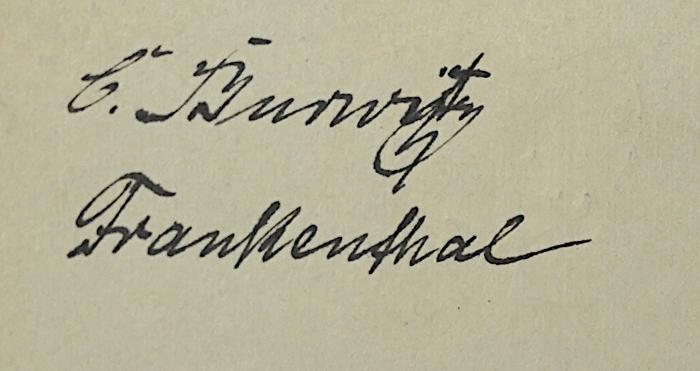 C. Hurwitz
Frankenthal